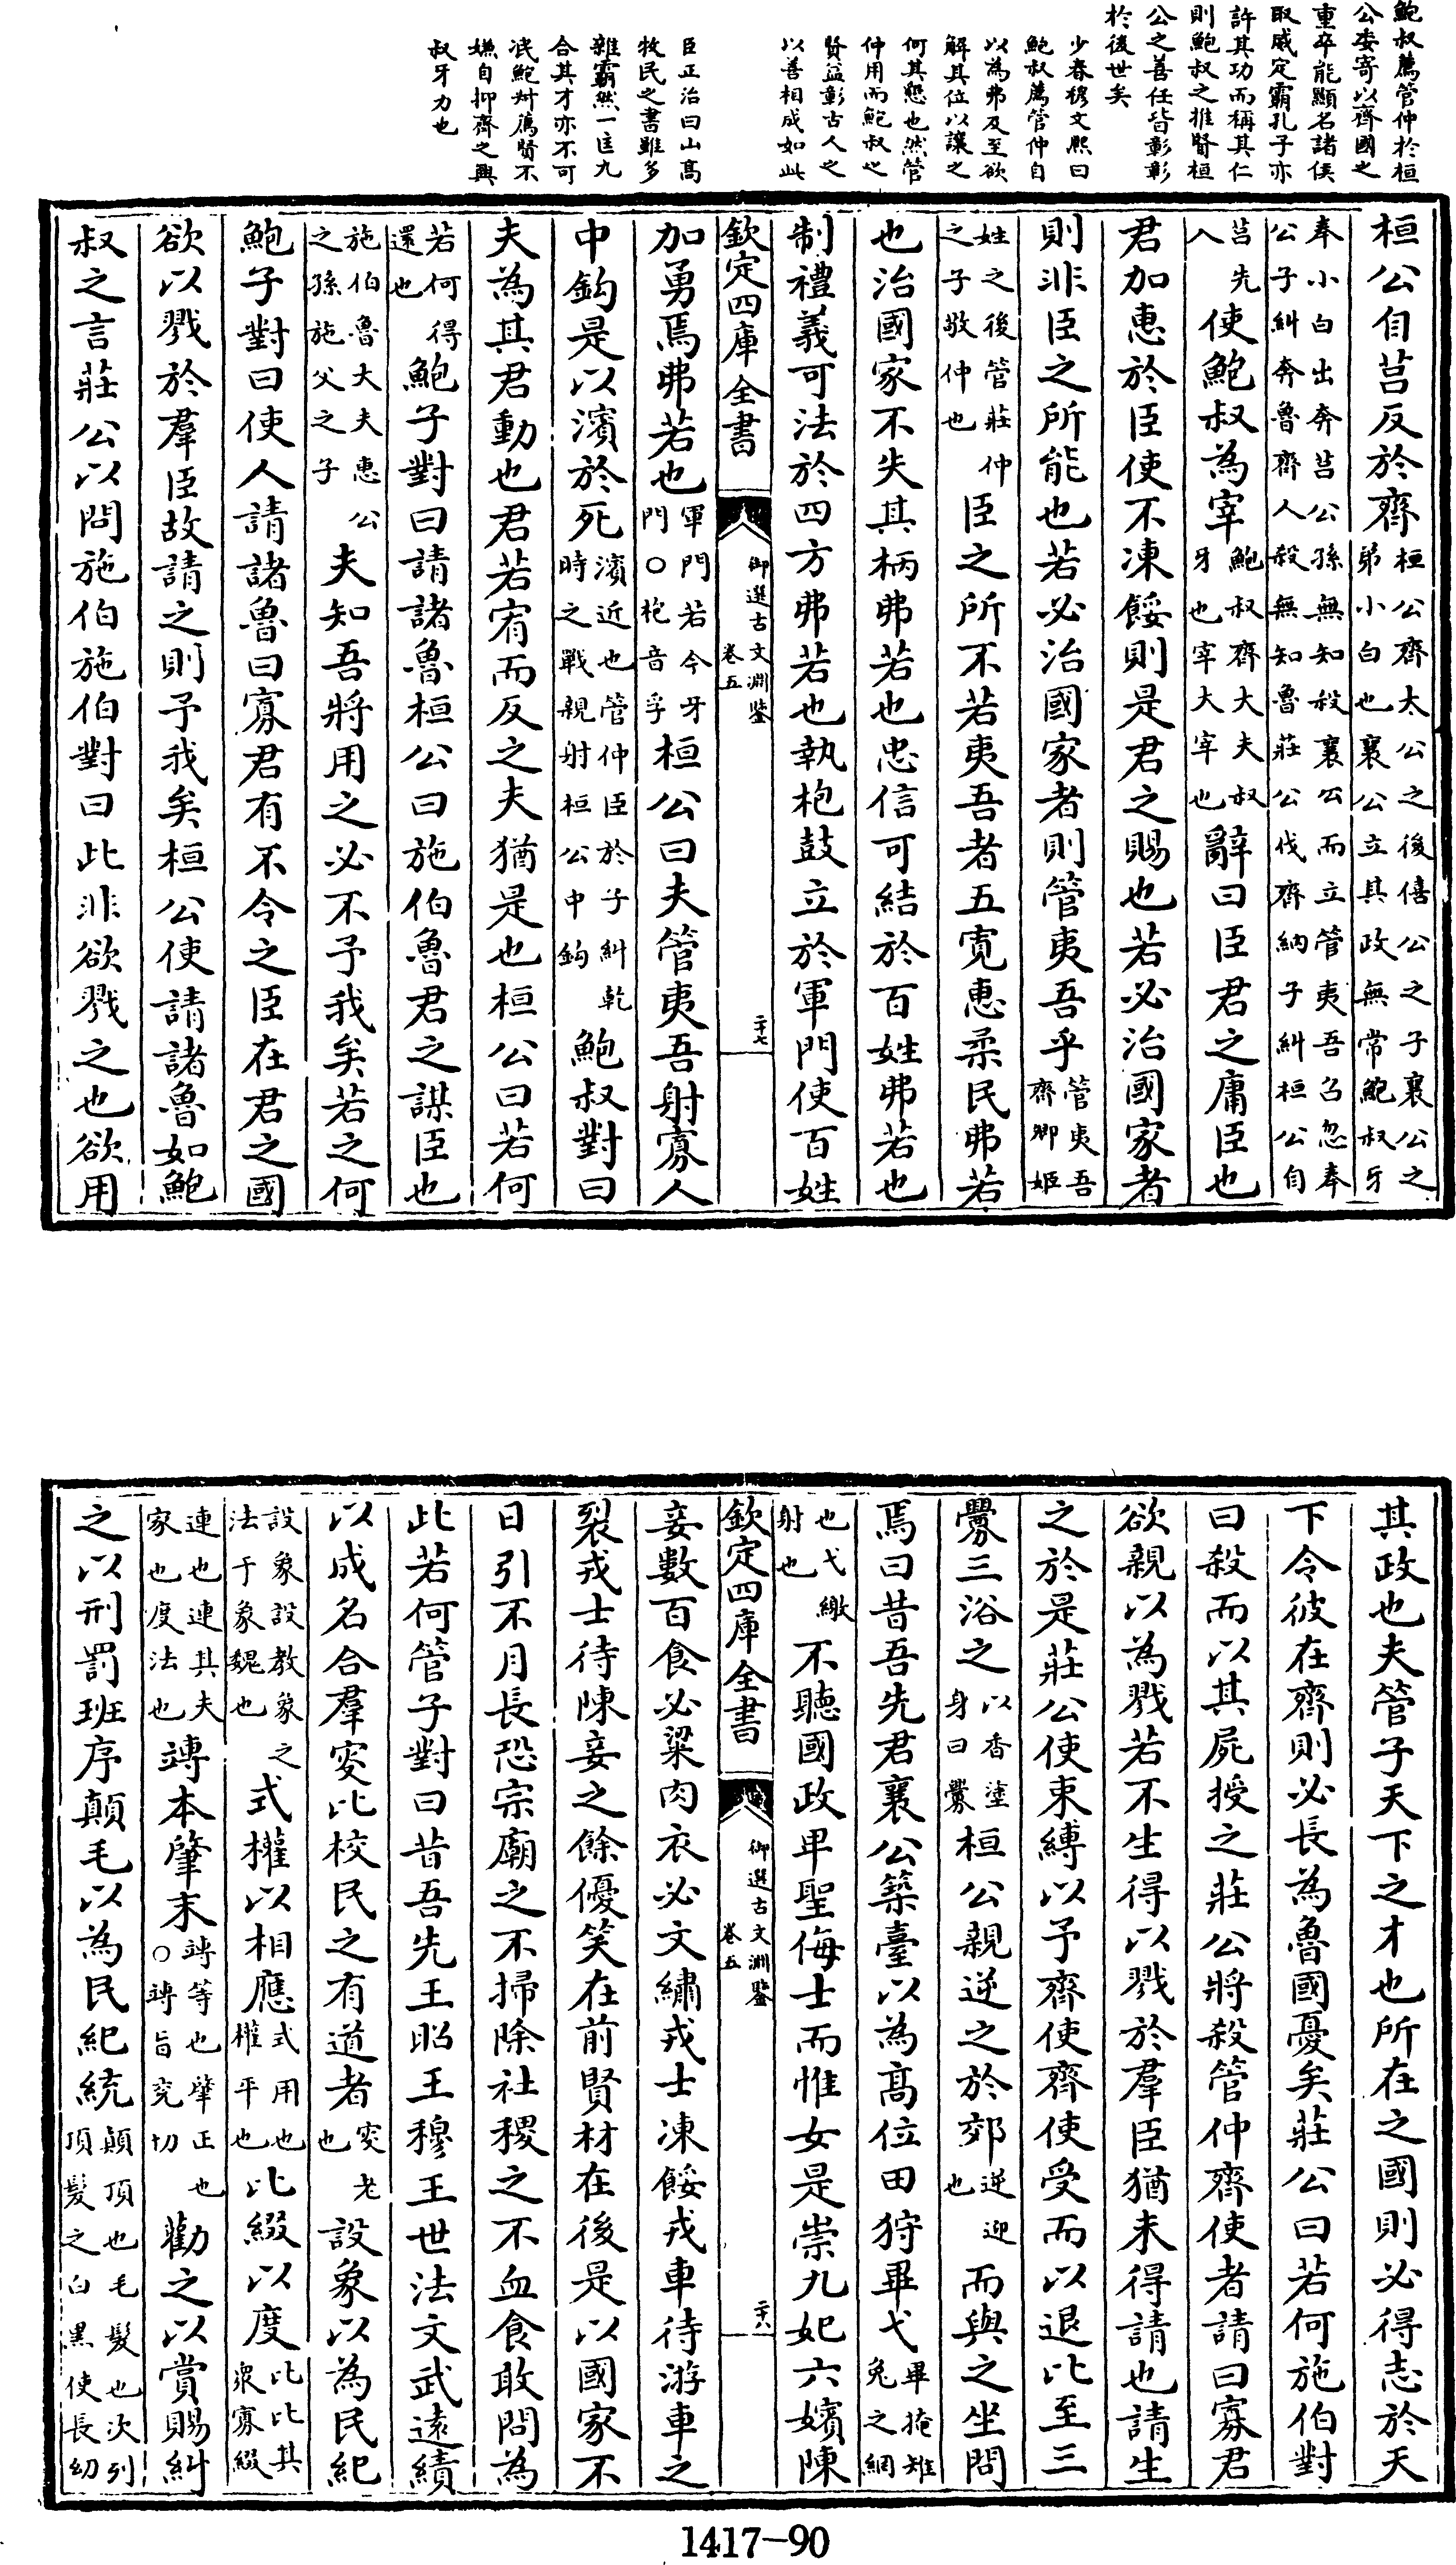 鮑叔薦管仲於桓
公委寄以齊國之
重卒能顯名諸侯
取威定霸孔子亦
許其功而稱其仁
則鮑叔之推賢桓
公之善任皆彰彰
於後世矣
少春穆文熙曰
鮑叔薦管仲自
以為弗及至欲
解其位以讓之
何其懇也然管
仲用而鮑叔之
賢益彰古人之
以善相成如此
臣正治曰山高
牧民之書雖多
雜霸然一匡九
合其才亦不可
泯鮑叔薦賢不
嫌自抑齊之興
叔牙力也
桓公自莒反於齊桓公齊太公之後僖公之子襄公之弟小白也襄公立其政無常鮑叔牙
奉小白出奔莒公孫無知殺襄公而立管夷吾召忽奉公子糾奔魯齊人殺無知魯莊公伐齊納子糾桓公自
莒先入使鮑叔為宰鮑叔齊大夫叔牙也宰大宰也辭曰臣君之庸臣也
君加惠於臣使不凍餒則是君之賜也若必治國家者
則非臣之所能也若必治國家者則管夷吾乎管夷吾齊卿姬
姓之後管莊仲之子敬仲也臣之所不若夷吾者五寛惠柔民弗若
也治國家不失其柄弗若也忠信可結於百姓弗若也
制禮義可法於四方弗若也執枹鼓立於軍門使百姓
欽定四庫全書
御選古文淵鑒
卷五
二十七
加勇焉弗若也軍門若今牙門○枹音孚桓公曰夫管夷吾射寡人
中鈎是以濱於死濱近也管仲臣於子糾乾時之戰親射桓公中鈎鮑叔對曰
夫為其君動也君若宥而反之夫猶是也桓公曰若何
若何得還也鮑子對曰請諸魯桓公曰施伯魯君之謀臣也
施伯魯大夫惠公之孫施父之子夫知吾將用之必不予我矣若之何
鮑子對曰使人請諸魯曰寡君有不令之臣在君之國
欲以戮於羣臣故請之則予我矣桓公使請諸魯如鮑
叔之言莊公以問施伯施伯對曰此非欲戮之也欲用
其政也夫管子天下之才也所在之國則必得志於天
下令彼在齊則必長為魯國憂矣莊公曰若何施伯對
曰殺而以其屍授之莊公將殺管仲齊使者請曰寡君
欲親以為戮若不生得以戮於羣臣猶未得請也請生
之於是莊公使束縛以予齊使齊使受而以退比至三
釁三浴之以香塗身曰釁桓公親逆之於郊逆迎也而與之坐問
焉曰昔吾先君襄公築臺以為高位田狩畢弋畢掩雉兔之網
也弋繳射也不聽國政卑聖侮士而惟女是崇九妃六嬪陳
欽定四庫全書
御選古文淵鑒
卷五
二十八
妾數百食必粱肉衣必文繡戎士凍餒戎車待游車之
裂戎士待陳妾之餘優笑在前賢材在後是以國家不
日引不月長恐宗廟之不掃除社稷之不血食敢問為
此若何管子對曰昔吾先王昭王穆王世法文武遠績
以成名合羣叟比校民之有道者叟老也設象以為民紀
設象設教象之法于象魏也式權以相應式用也權平也比綴以度比比其衆寡綴
連也連其夫家也度法也竱本肇末竱等也肇正也○竱旨兖切勸之以賞賜糾
之以刑罰班序顛毛以為民紀統顛頂也毛髮也次列頂髮之白黑使長幼
1417-90